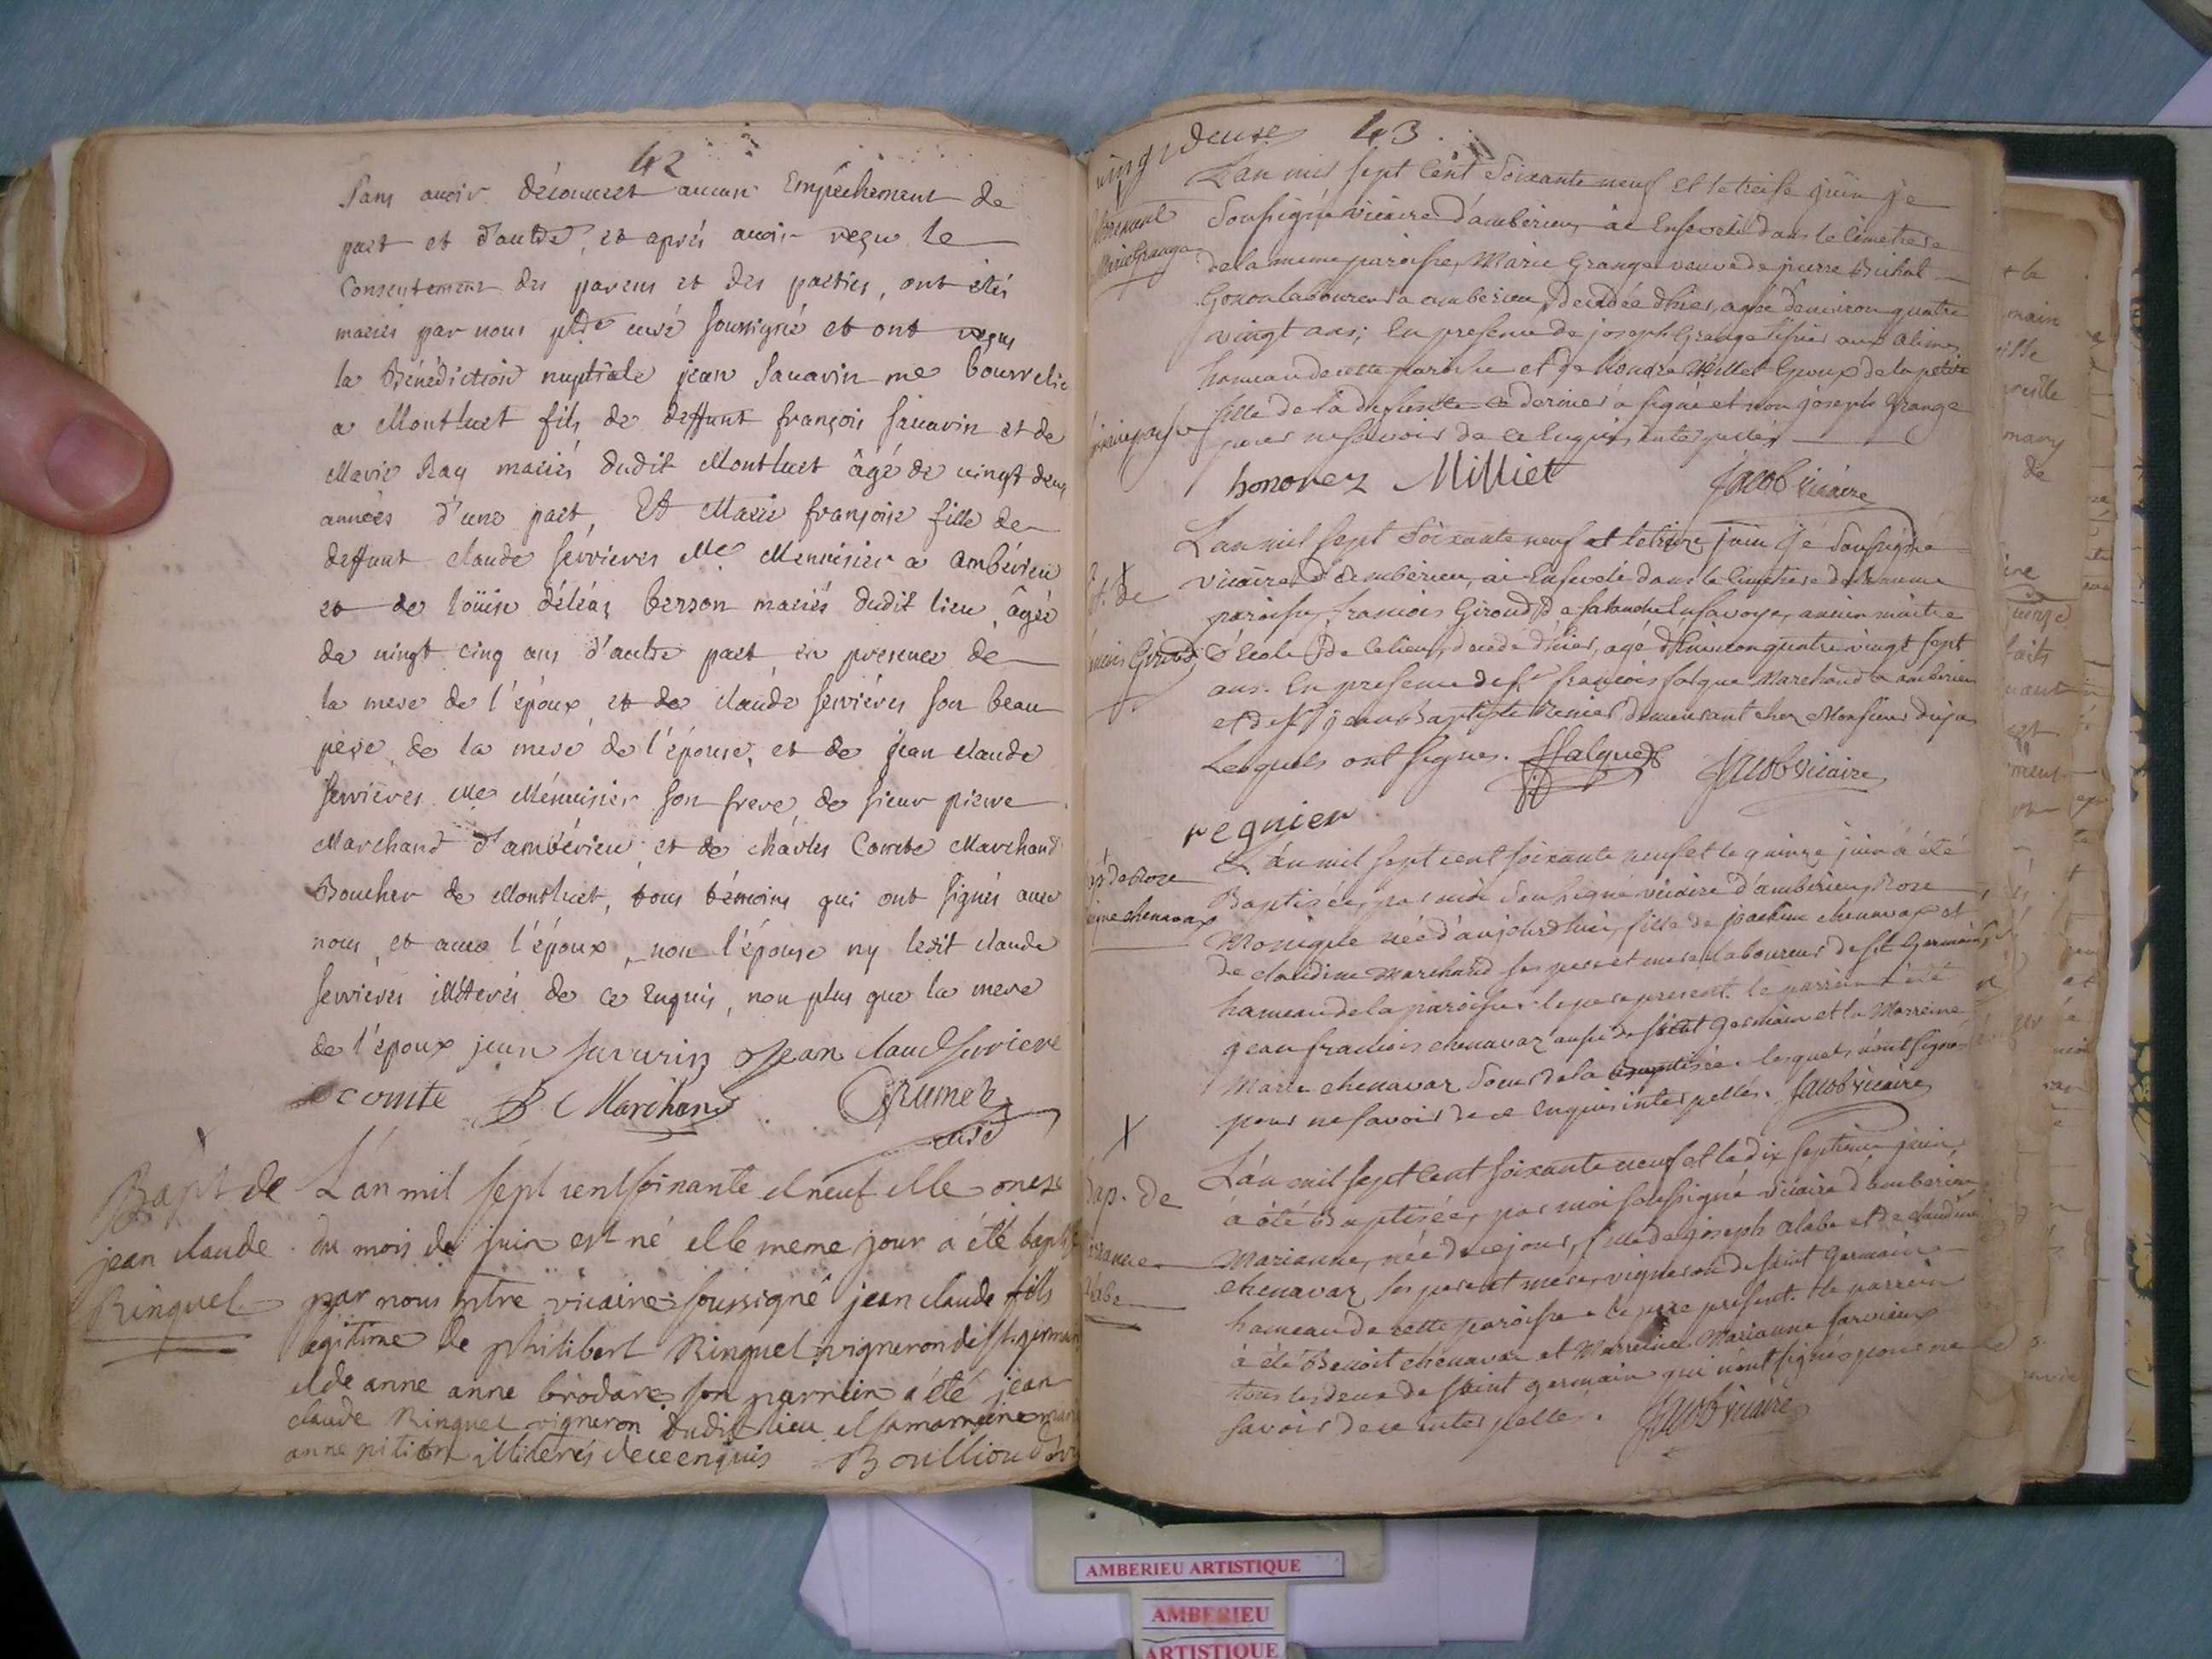 42
Sans avoir découvert aucun Empêchement de
part et d'autre, et aprés avoir reçu le
Consentement des parens et des parties, ont étés
mariés par nous ptre curé soussigné et ont reçus
la Bénédiction nuptiale jean Savarin me bourrelie
a Montluet fils de deffunt françois savarin et de
Marie Ray mariés dudit Montluet âgé de vingt deux
années d'une part, Et Marie françoise fille de
deffunt claude servieres Me Menuisier a ambérieu
et de loüise berson mariés dudit lieu, âgée
de vingt cinq ans d'autre part en presence de
la mere de l'époux, et de claude serviéres son beau
pere, de la mere de l'épouse, et de jean claude
servieres Me Ménuisier son frere, de sieur pierre
Marchand d'ambérieu, et de charles Comte Marchand
Boucher de Montluet, tous témoins qui ont signés avec
nous, et avec l'époux, non l'épouse ny ledit claude
servieres illiterés de ce Enquis, non plus que la mere
de l'époux jean savarin Jean claude serviere
comte P Marchand Rumet
curé
Bapt de
jean claude
Ringuet
L'an mil sept cent soixante et neuf et le onze
du mois de juin est né et le meme jour a été bapt
par nous ptre vicaire soussigné jean claude fils
legitime de philibert Ringuet vigneron de st germain
et de anne anne brodare son parrein a été jean
claude Ringuet vigneron dudit lieu et sa marreine
anne pition illiterés de ce enquis Boullioud
vingt deuxe 43
Marie Grange
L'an mil sept cent Soixante neuf et le treise juin je
Soussigné vicaire d'amberieu ai Enseveli dans le cimetiere
de la meme paroisse, Marie Grange veuve de pierre Bichat
Gonon laboureur a amberieu, décédée d'hier, agée d'environ quatre
vingt ans; En presence de joseph Grange aux alimes
hameau de cette paroisse et de Millet Epoux de la petite
fille de la defunte ce dernier a signé et non joseph Grange
pour ne savoir de ce enquis interpellés
honorez Milliet Jacob vicaire
L'an mil sept Soixante neuf et le treize juin je Soussigné
vicaire d'amberieu, ai Enseveli dans le cimetiere de la meme
paroisse, francois Giroud de salanche En savoye, ancien maitre
d'Ecole de ce lieu, décédé d'hier, agé d'Environ quatre vingt sept
ans. En presence de sr françois falque Marchand a amberieu
et de sr jean Baptiste Renier demeurant chez Monsieur dujat
Lesquels ont signes. Falque Jacob vicaire
regnier
Bap de Roze
chenavax
L'an mil sept cent soixante neuf et le quinze juin à été
Baptisée, par moi Soussigné vicaire d'amberieu, Rose
Monique née d'aujourdhui, fille de joachim chenavax et
de claudine Marchand ses pere et mere laboureur de st Germain,
hameau de la paroisse le pere present. le parrein à été
jean francois chenavaz aussi de saint germain et la Marreine
Marie chenavaz Soeur de la baptisée. lesquels n'ont signes
pour ne savoir de ce Enquis interpellés. Jacob vicaire
Bap. de
L'an mil sept Cent soixante neuf et le dix septieme juin
à été Baptisée, par moi soussigné vicaire d'amberieu
Marianne, née de ce jour, fille de joseph alabe et de claudine
chenavaz ses pere et mere, vigneron de saint Germain
hameau de cette paroisse le pere present. Le parrein
à été Benoit chenavaz et Marreine Marianne
tous les deux de saint germain qui n'ont signés pour ne
savoir de ce interpellés. Jacob vicaire
AMBERIEU ARTISTIQUE
AMBERIEU
ARTISTIQUE